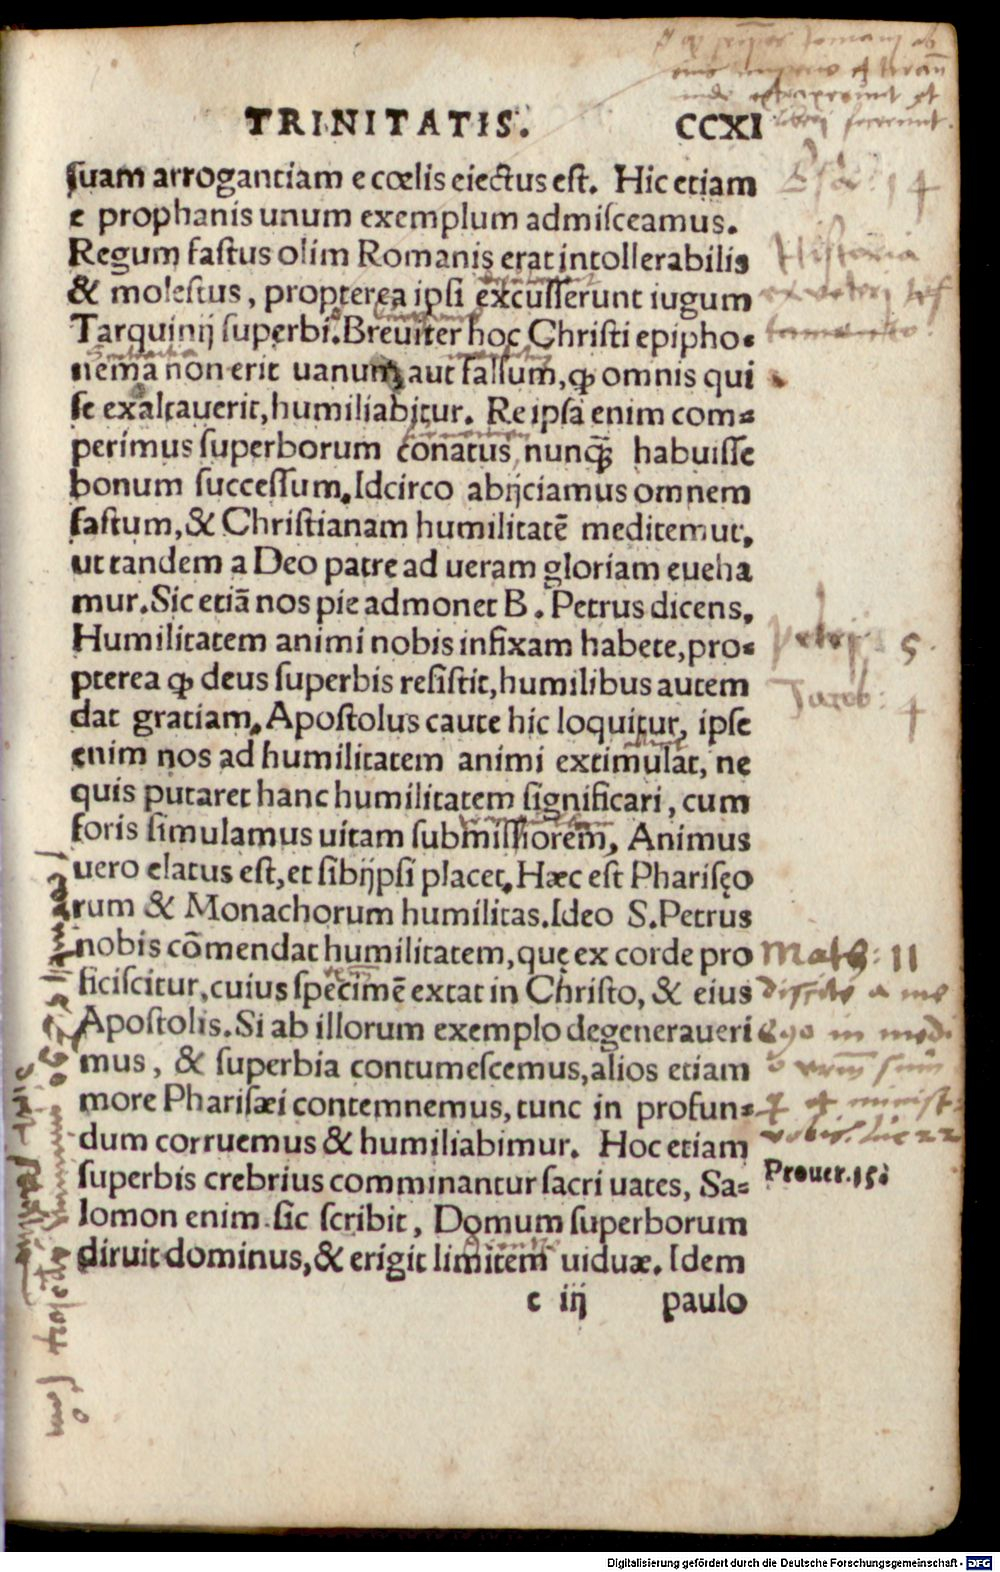 TRINITATIS. CCXI
ſuam arrogantiam e cœlis eiectus eſt. Hic etiam
e prophanis unum exemplum admiſceamus.
Regum faſtus olim Romanis erat intollerabilis
& moleſtus, propterea ipſi excuſſerunt iugum
Tarquinij ſuperbi. Breuiter hoc Chriſti epipho-
nema non erit uanum aut falſum, ꝙ omnis qui
ſe exaltauerit, humiliabitur. Re ipſa enim com=
perimus ſuperborum conatus nunqꝫ̃ habuiſſe
bonum ſucceſſum. Idcirco abijciamus omnem
faſtum, & Chriſtianam humilitatē meditemur,
ut tandem a Deo patre ad ueram gloriam eueha
mur. Sic etiā nos pie admonet B. Petrus dicens,
Humilitatem animi nobis infixam habete, pro-
pterea ꝙ deus ſuperbis reſiſtit, humilibus autem
dat gratiam. Apoſtolus caute hic loquitur, ipſe
enim nos ad humilitatem animi extimulat, ne
quis putaret hanc humilitatem ſignificari, cum
foris ſimulamus uitam ſubmiſſiorem, Animus
uero elatus eſt, et ſibijpſi placet. Hæc eſt Phariſęo
rum & Monachorum humilitas. Ideo S. Petrus
nobis cōmendat humilitatem, quę ex corde pro
ficiſcitur, cuius ſpecimē extat in Chriſto, & eius
Apoſtolis. Si ab illorum exemplo degeneraueri
mus, & ſuperbia contumeſcemus, alios etiam
more Phariſæi contemnemus, tunc in profun=
dum corruemus & humiliabimur. Hoc etiam
ſuperbis crebrius comminantur ſacri uates, Sa=
lomon enim ſic ſcribit, Domum ſuperborum
diruit dominus, & erigit limitem uiduæ. Idem
c iij paulo
Historia
ex veteri teſ
tamento.
petri 5.
Jacob: 4
Math: 11
diſcite a me
Ego in medi
o
vobis. luc 22
Prouer.15.
Digitalisierung gefördert durch die Deutsche Forschungsgemeinschaft - DFG